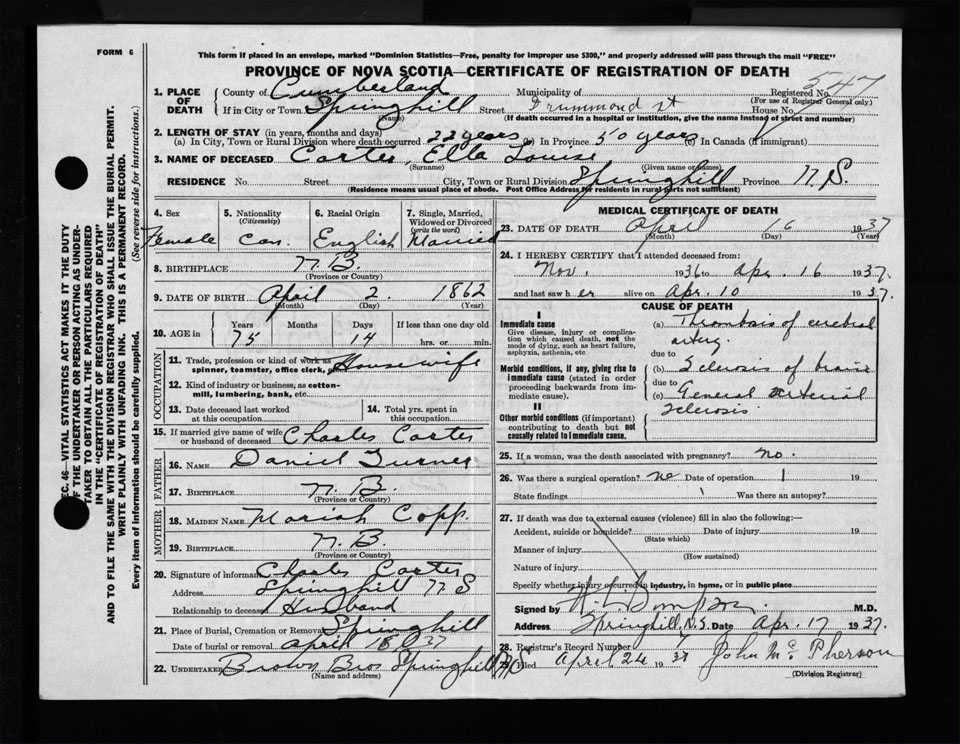 FORM 6
This form if placed in an envelope, marked "Dominion Statistics—Free, penalty for improper use $300," and properly addressed will pass through the mail "FREE"
PROVINCE OF NOVA SCOTIA—CERTIFICATE OF REGISTRATION OF DEATH
547
1. PLACE OF DEATH
County of Cumberland Municipality of Registered No.
(For use of Registrar General only)
If in City or Town Springhill Street Drummond St House No.
(Name) (If death occurred in a hospital or institution, give the name instead of street and number)
2. LENGTH OF STAY (in years, months and days)
(a) In City, Town or Rural Division where death occurred 22 years (b) In Province 50 years (c) In Canada (if immigrant)
3. NAME OF DECEASED Carter, Ella Louise
(Surname) (Given name or names)
RESIDENCE No. Street City, Town or Rural Division Springhill Province N.S.
(Residence means usual place of abode. Post Office Address for residents in rural parts not sufficient)
4. Sex Female
5. Nationality (Citizenship) Can.
6. Racial Origin English
7. Single, Married, Widowed or Divorced (write the word) Married
8. BIRTHPLACE N.B.
(Province or Country)
9. DATE OF BIRTH April 2. 1862
(Month) (Day) (Year)
10. AGE in Years Months Days If less than one day old
75 14 hrs. or min.
OCCUPATION
11. Trade, profession or kind of work as spinner, teamster, office clerk, etc. Housewife
12. Kind of industry or business, as cotton-mill, lumbering, bank, etc.
13. Date deceased last worked at this occupation
14. Total yrs. spent in this occupation
15. If married give name of wife or husband of deceased Charles Carter
FATHER
16. NAME Daniel Turner
17. BIRTHPLACE N.B.
(Province or Country)
MOTHER
18. MAIDEN NAME Mariah Copp.
19. BIRTHPLACE N.B.
(Province or Country)
20. Signature of informant Charles Carter
Address Springhill N.S
Relationship to deceased Husband
21. Place of Burial, Cremation or Removal Springhill
Date of burial or removal April 18 1937
22. UNDERTAKER Brown Bros Springhill N.S
(Name and address)
MEDICAL CERTIFICATE OF DEATH
23. DATE OF DEATH April 16 1937
(Month) (Day) (Year)
24. I HEREBY CERTIFY that I attended deceased from:
Nov. 1936 to Apr. 16 1937.
and last saw h er alive on Apr. 10 1937.
CAUSE OF DEATH
I
Immediate cause
Give disease, injury or complication which caused death, not the mode of dying, such as heart failure, asphyxia, asthenia, etc
(a) Thrombosis of cerebral artery.
due to
Morbid conditions, if any, giving rise to immediate cause (stated in order proceeding backwards from immediate cause).
(b) Sclerosis of brain
due to
(c) General arterial sclerosis
II
Other morbid conditions (if important) contributing to death but not causally related to immediate cause.
25. If a woman, was the death associated with pregnancy? no.
26. Was there a surgical operation? no Date of operation 19
State findings Was there an autopsy?
27. If death was due to external causes (violence) fill in also the following:—
Accident, suicide or homicide? Date of injury 19
(State which)
Manner of injury
(How sustained)
Nature of injury
Specify whether injury occurred in industry, in home, or in public place
Signed by M.D.
Address Springhill, N.S. Date Apr. 17 1937.
28. Registrar's Record Number
29. Filed April 24 1937 John McPherson
(Division Registrar)
SEC. 46—VITAL STATISTICS ACT MAKES IT THE DUTY
OF THE UNDERTAKER OR PERSON ACTING AS UNDER-
TAKER TO OBTAIN ALL THE PARTICULARS REQUIRED
IN THE "CERTIFICATE OF REGISTRATION OF DEATH"
AND TO FILE THE SAME WITH THE DIVISION REGISTRAR WHO SHALL ISSUE THE BURIAL PERMIT.
WRITE PLAINLY WITH UNFADING INK. THIS IS A PERMANENT RECORD.
Every item of information should be carefully supplied. (See reverse side for instructions.)